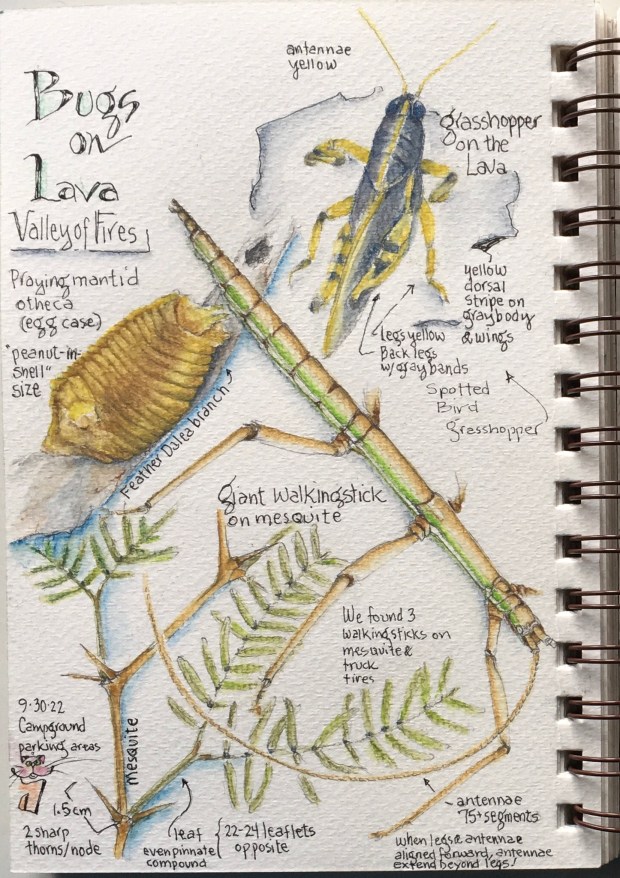 Bugs
on
Lava
Valley of Fires
antennae
yellow
grasshopper
on the
Lava
yellow
dorsal
stripe on
gray body
& wings
Legs yellow
Back legs
w/gray bands
Spotted
Bird
grasshopper
Praying mantid
otheca
(egg case)
"peanut-in-
shell"
size
Feather Dalea branch
giant walkingstick
on mesquite
We found 3
walkingsticks on
mesquite &
truck
tires
9·30·22
Campground
parking areas
mesquite
1.5cm
2 sharp
thorns/node
leaf
even pinnate
compound
22-24 leaflets
opposite
antennae
75+ segments
when legs & antennae
aligned forward, antennae
extend beyond legs!